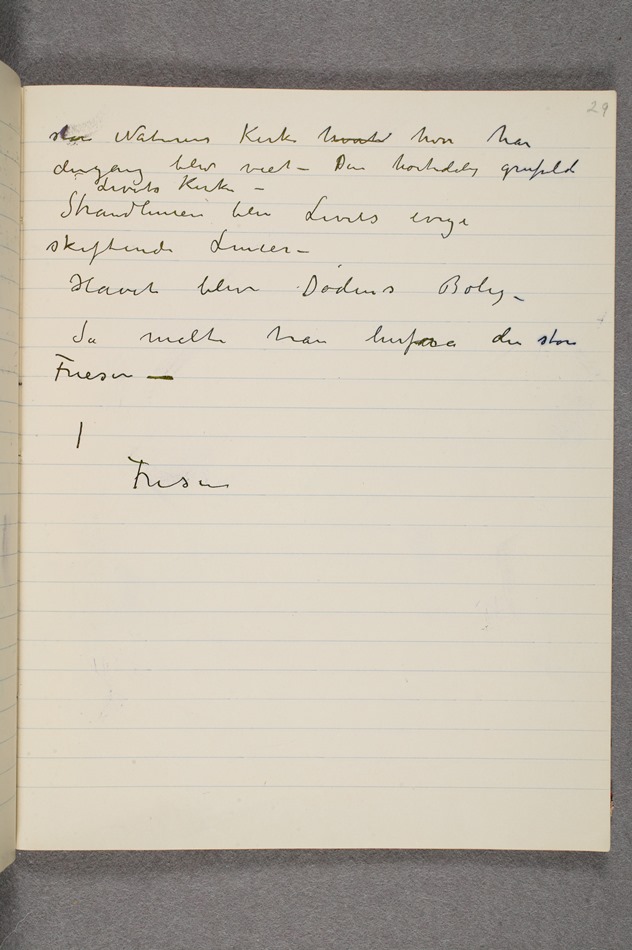 29
store Naturens Kirke hvor han
dengang blev viet – Den
Livets Kirke –
Strandlinien blev Livets evige
skiftende Linier –
Havet blev Dødens Bolig –
Så malte han den store
Frisen —
Frisen